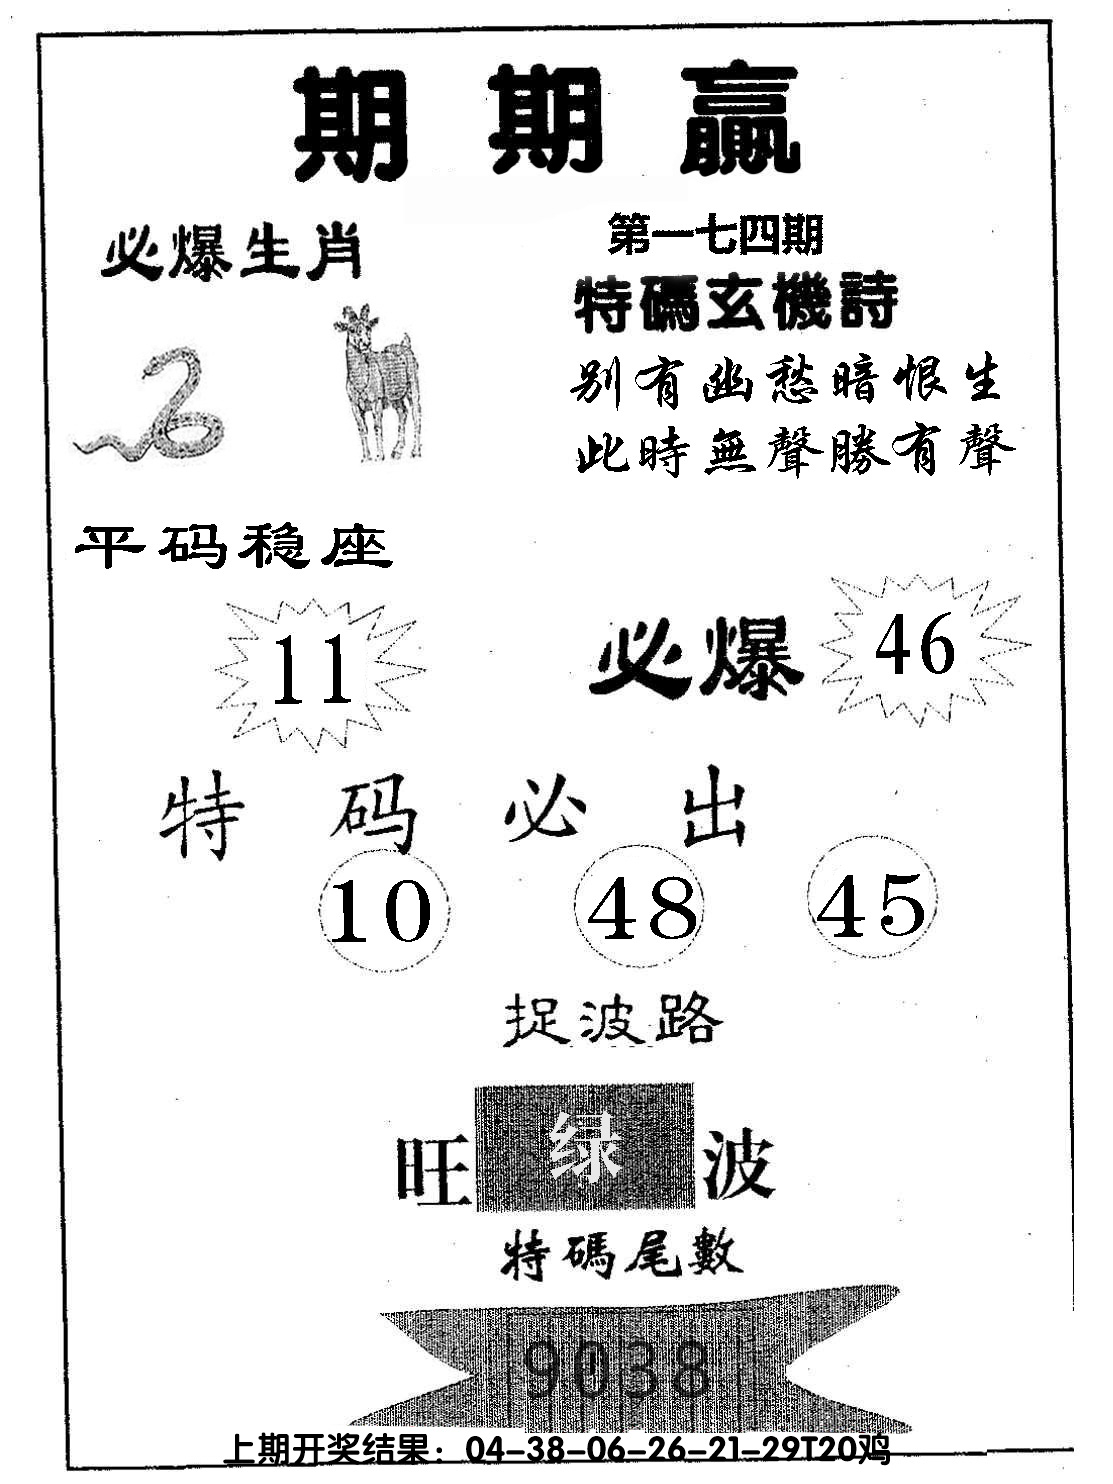 期期赢
必爆生肖
第一七四期
特碼玄機詩
别有幽愁暗恨生
此時無聲勝有聲
平码稳座
11
必爆 46
特码必出
10 48 45
捉波路
旺 绿 波
特碼尾數
9038
上期开奖结果：04-38-06-26-21-29T20鸡